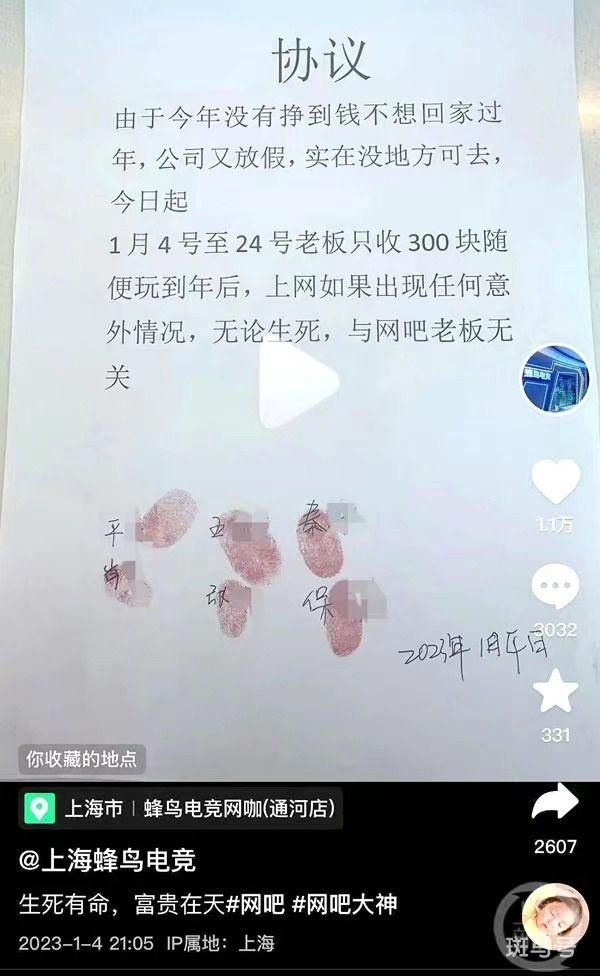 协议
由于今年没有挣到钱不想回家过
年，公司又放假，实在没地方可去，
今日起
1月4号至24号老板只收300块随
便玩到年后，上网如果出现任何意
外情况，无论生死，与网吧老板无
关
蜂鸟电竞
1.1万
平 王 秦
肖 张 保
3032
2023年1月4日
331
你收藏的地点
上海市 | 蜂鸟电竞网咖(通河店)
2607
@上海蜂鸟电竞
生死有命，富贵在天#网吧 #网吧大神
2023-1-4 21:05 IP属地：上海
斑马号